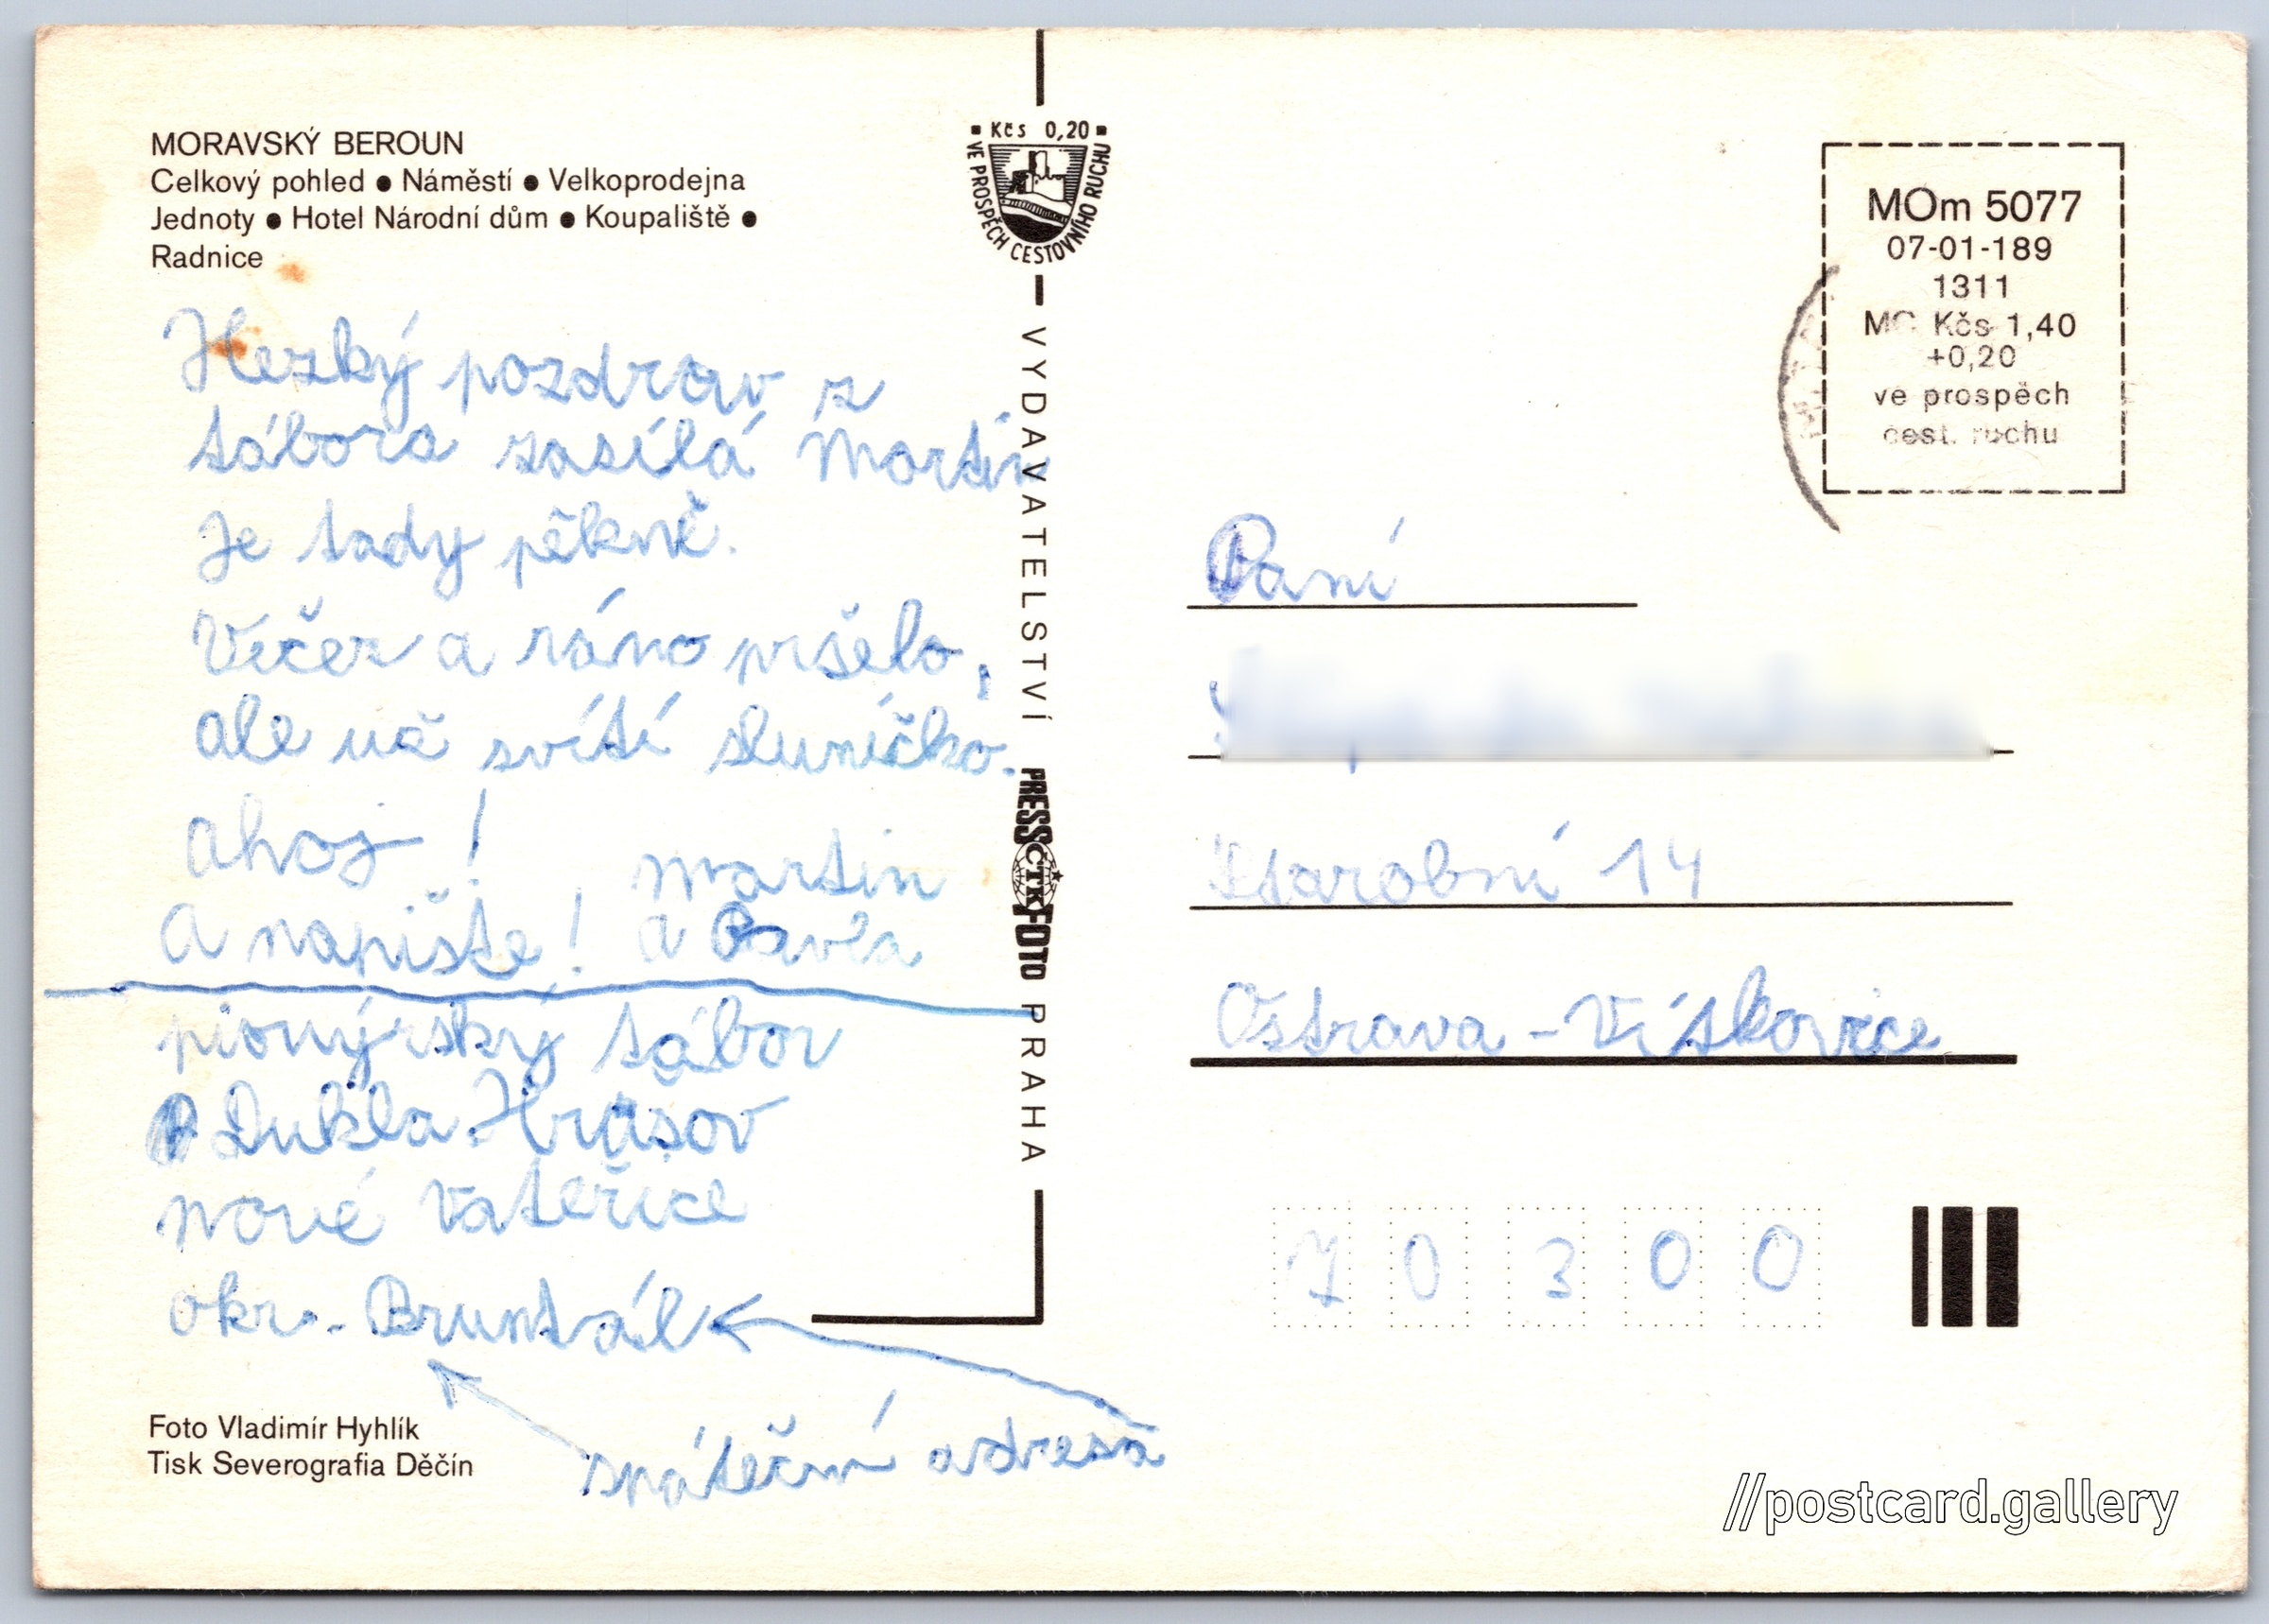 MORAVSKÝ BEROUN
Celkový pohled ● Náměstí ● Velkoprodejna
Jednoty ● Hotel Národní dům ● Koupaliště ●
Radnice
Hezký pozdrav z
tábora zasílá Martin
Je tady pěkně.
Večer a ráno pršelo,
ale už svítí sluníčko.
Ahoj!
Martin
A napište! a Pavla
pionýrský tábor
Dukla Hrušov
nové Vateřice
okr. Bruntál
zpáteční adresa
Foto Vladimír Hyhlík
Tisk Severografia Děčín
Kčs 0,20
VE PROSPĚCH CESTOVNÍHO RUCHU
VYDAVATELSTVÍ PRESSFOTO ČTK PRAHA
MOm 5077
07-01-189
1311
MC Kčs 1,40
+0,20
ve prospěch
cest. ruchu
Paní
14
Ostrava - Vískovice
70300
//postcard.gallery